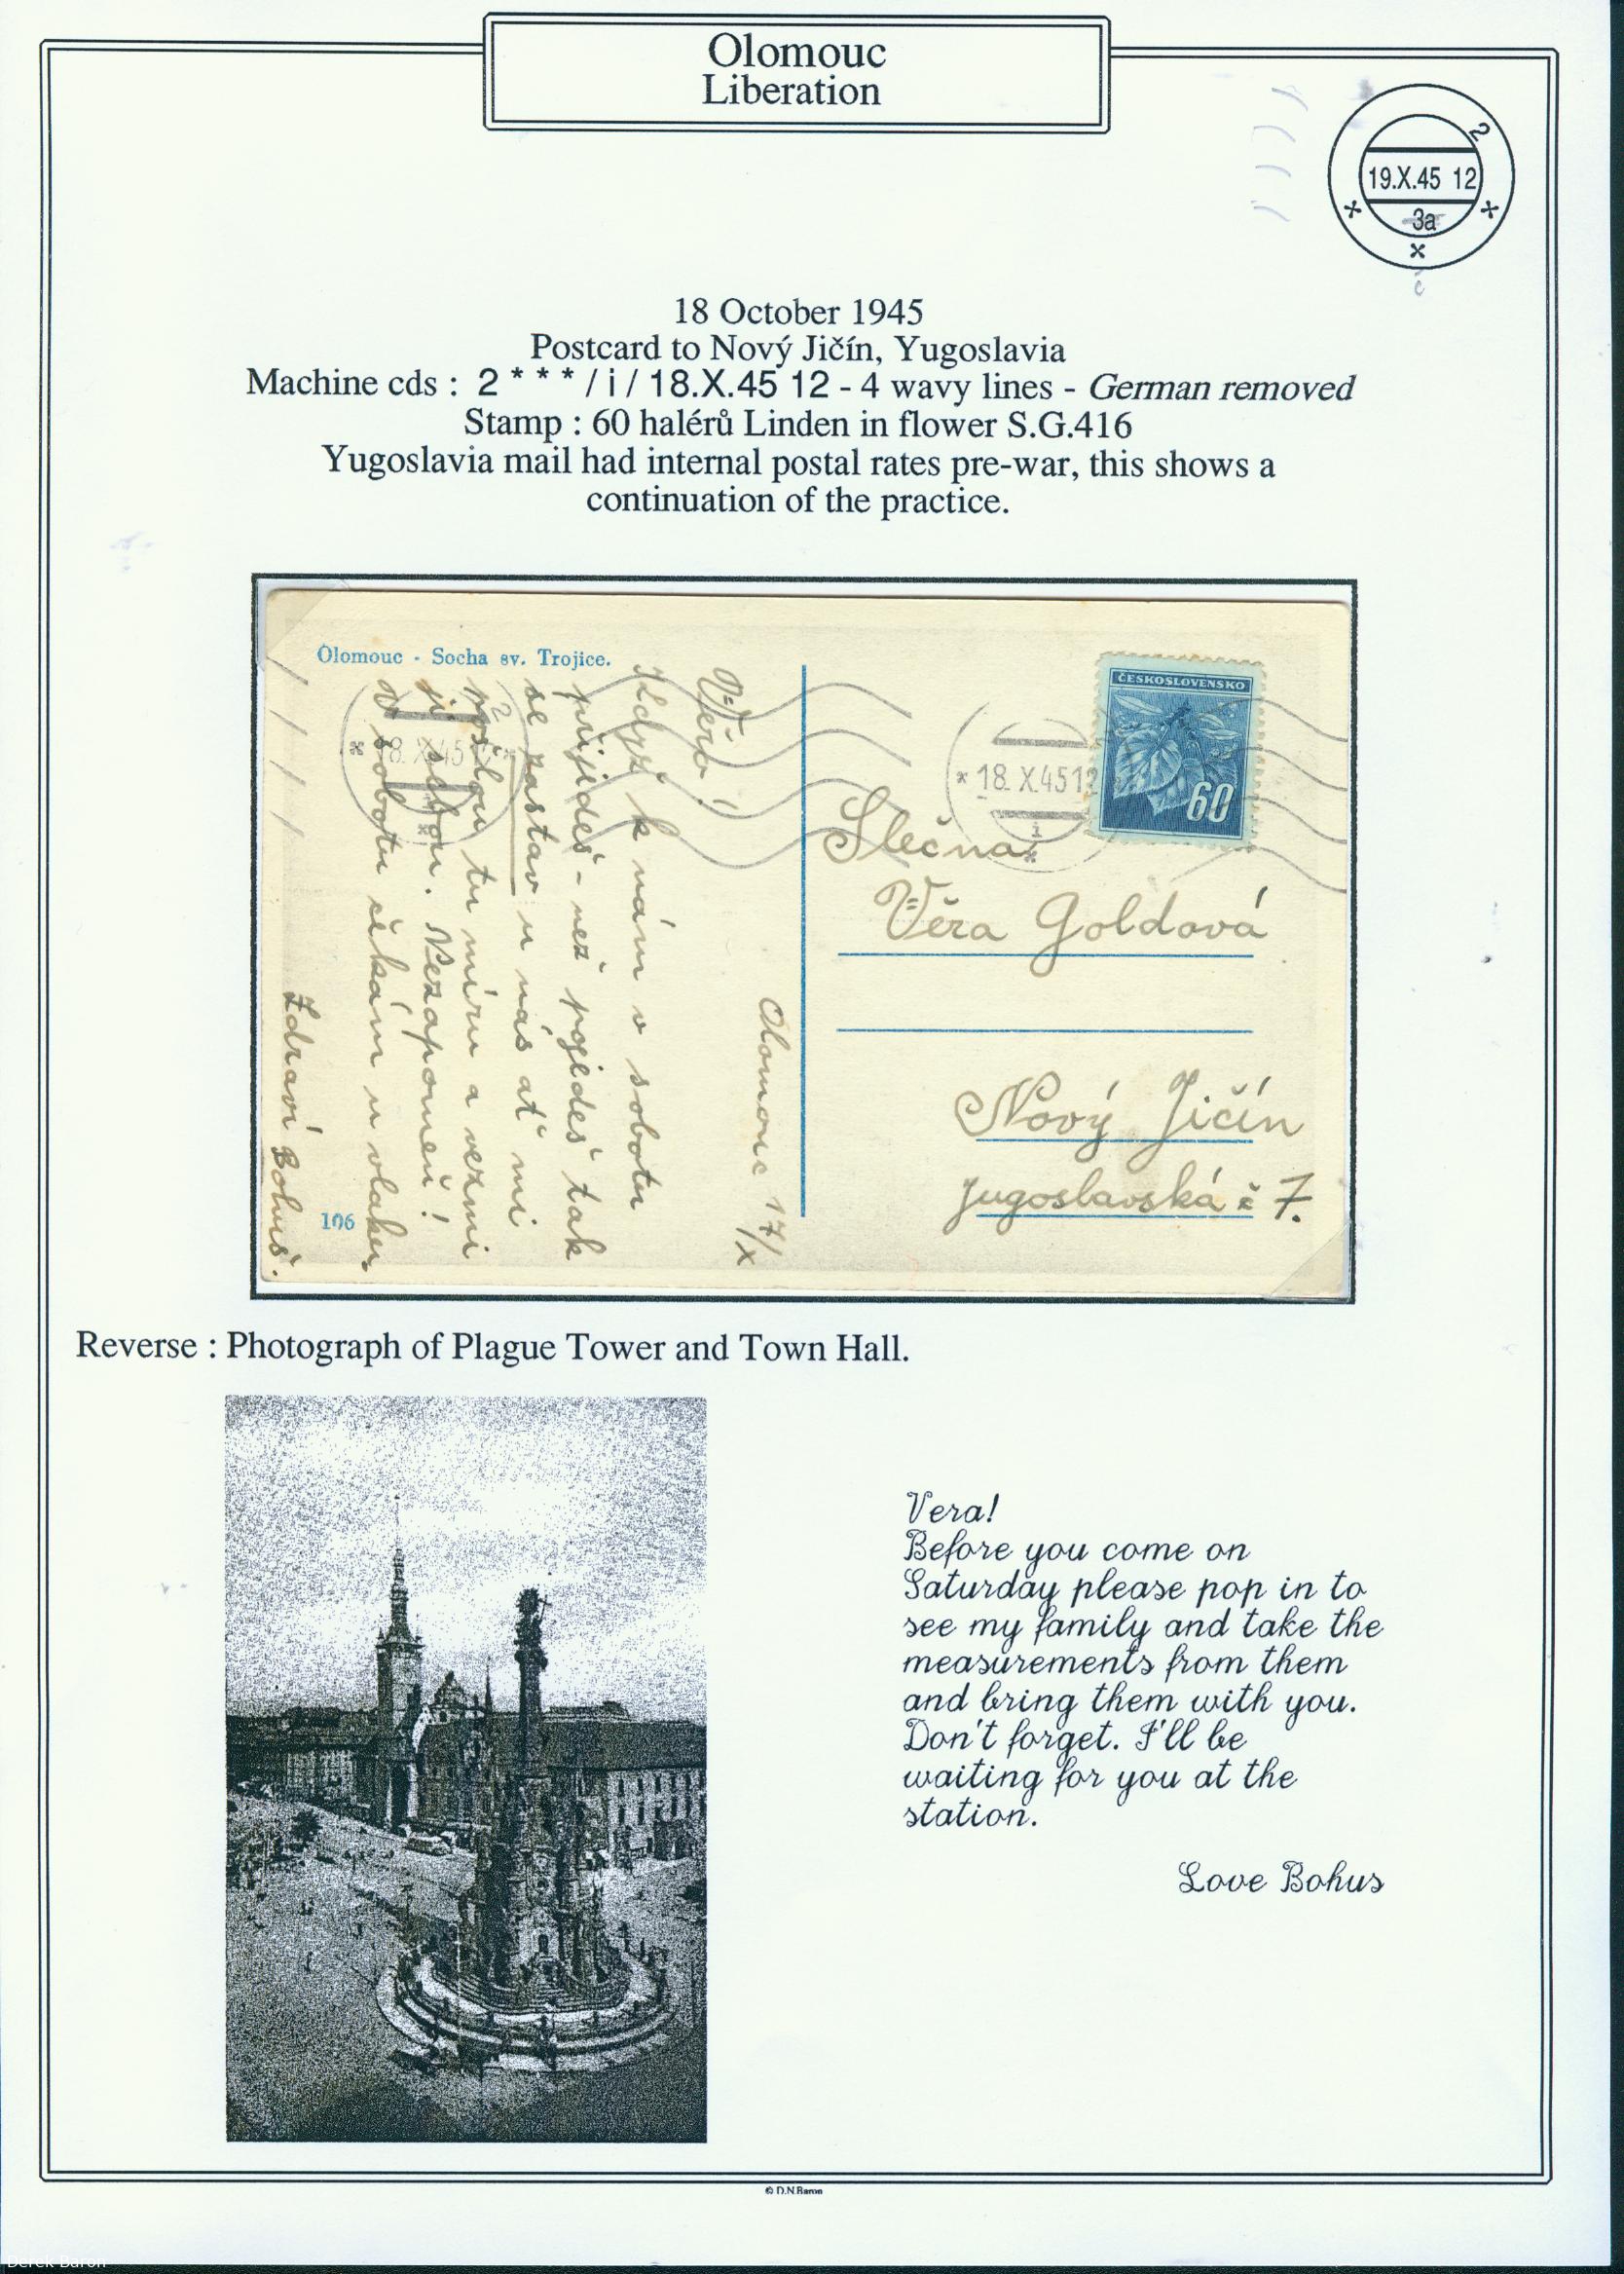 Olomouc
Liberation
2
19.X.45 12
3a
18 October 1945
Postcard to Nový Jičín, Yugoslavia
Machine cds : 2 * * * / i / 18.X.45 12 - 4 wavy lines - German removed
Stamp : 60 halérů Linden in flower S.G.416
Yugoslavia mail had internal postal rates pre-war, this shows a
continuation of the practice.
Olomouc - Socha sv. Trojice.
Olomouc 17/X
Věro!
Když k nám v sobotu
přijdeš - než pojedeš tak
se zastav u nás ať mi
pošlou tu míru a vezmi
ji sebou. Nezapomeň!
V sobotu čekám u vlaku.
Zdraví Bohuš.
106
2
18. X.45
ČESKOSLOVENSKO
60
18. X.45 12
i
Slečna
Věra Goldová
Nový Jičín
Jugoslavská č 7.
Reverse : Photograph of Plague Tower and Town Hall.
Vera!
Before you come on
Saturday please pop in to
see my family and take the
measurements from them
and bring them with you.
Don't forget. I'll be
waiting for you at the
station.
Love Bohus
© D.N.Baron
Derek Baron